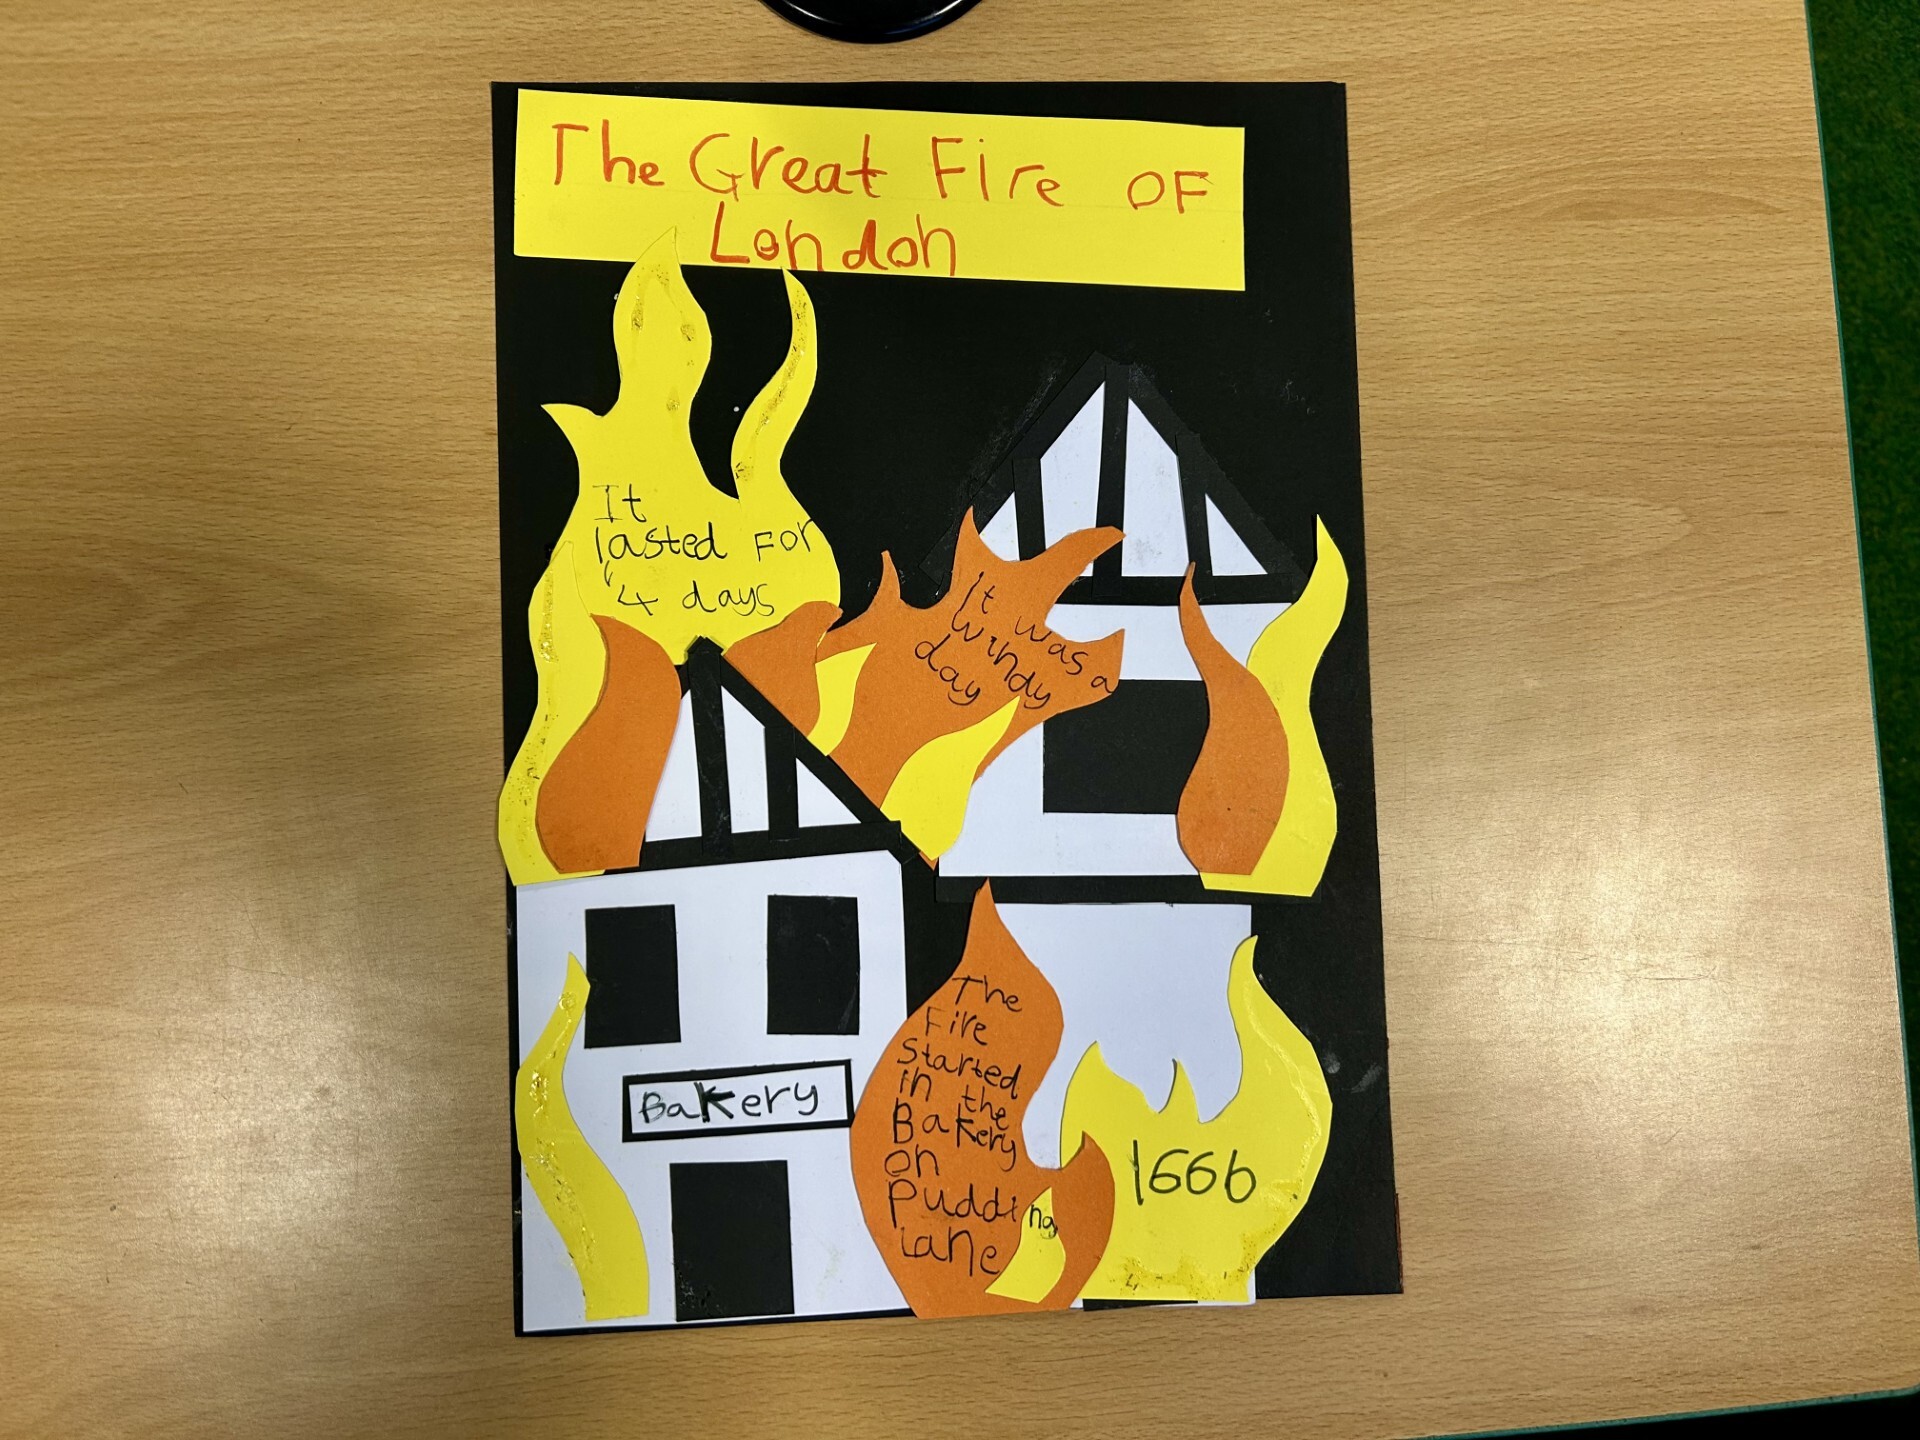 The Great Fire OF
London
It
lasted For
4 days
It was a
windy
day
The
Fire
started
in the
Bakery
on
Pudding
Lane
Bakery
1666